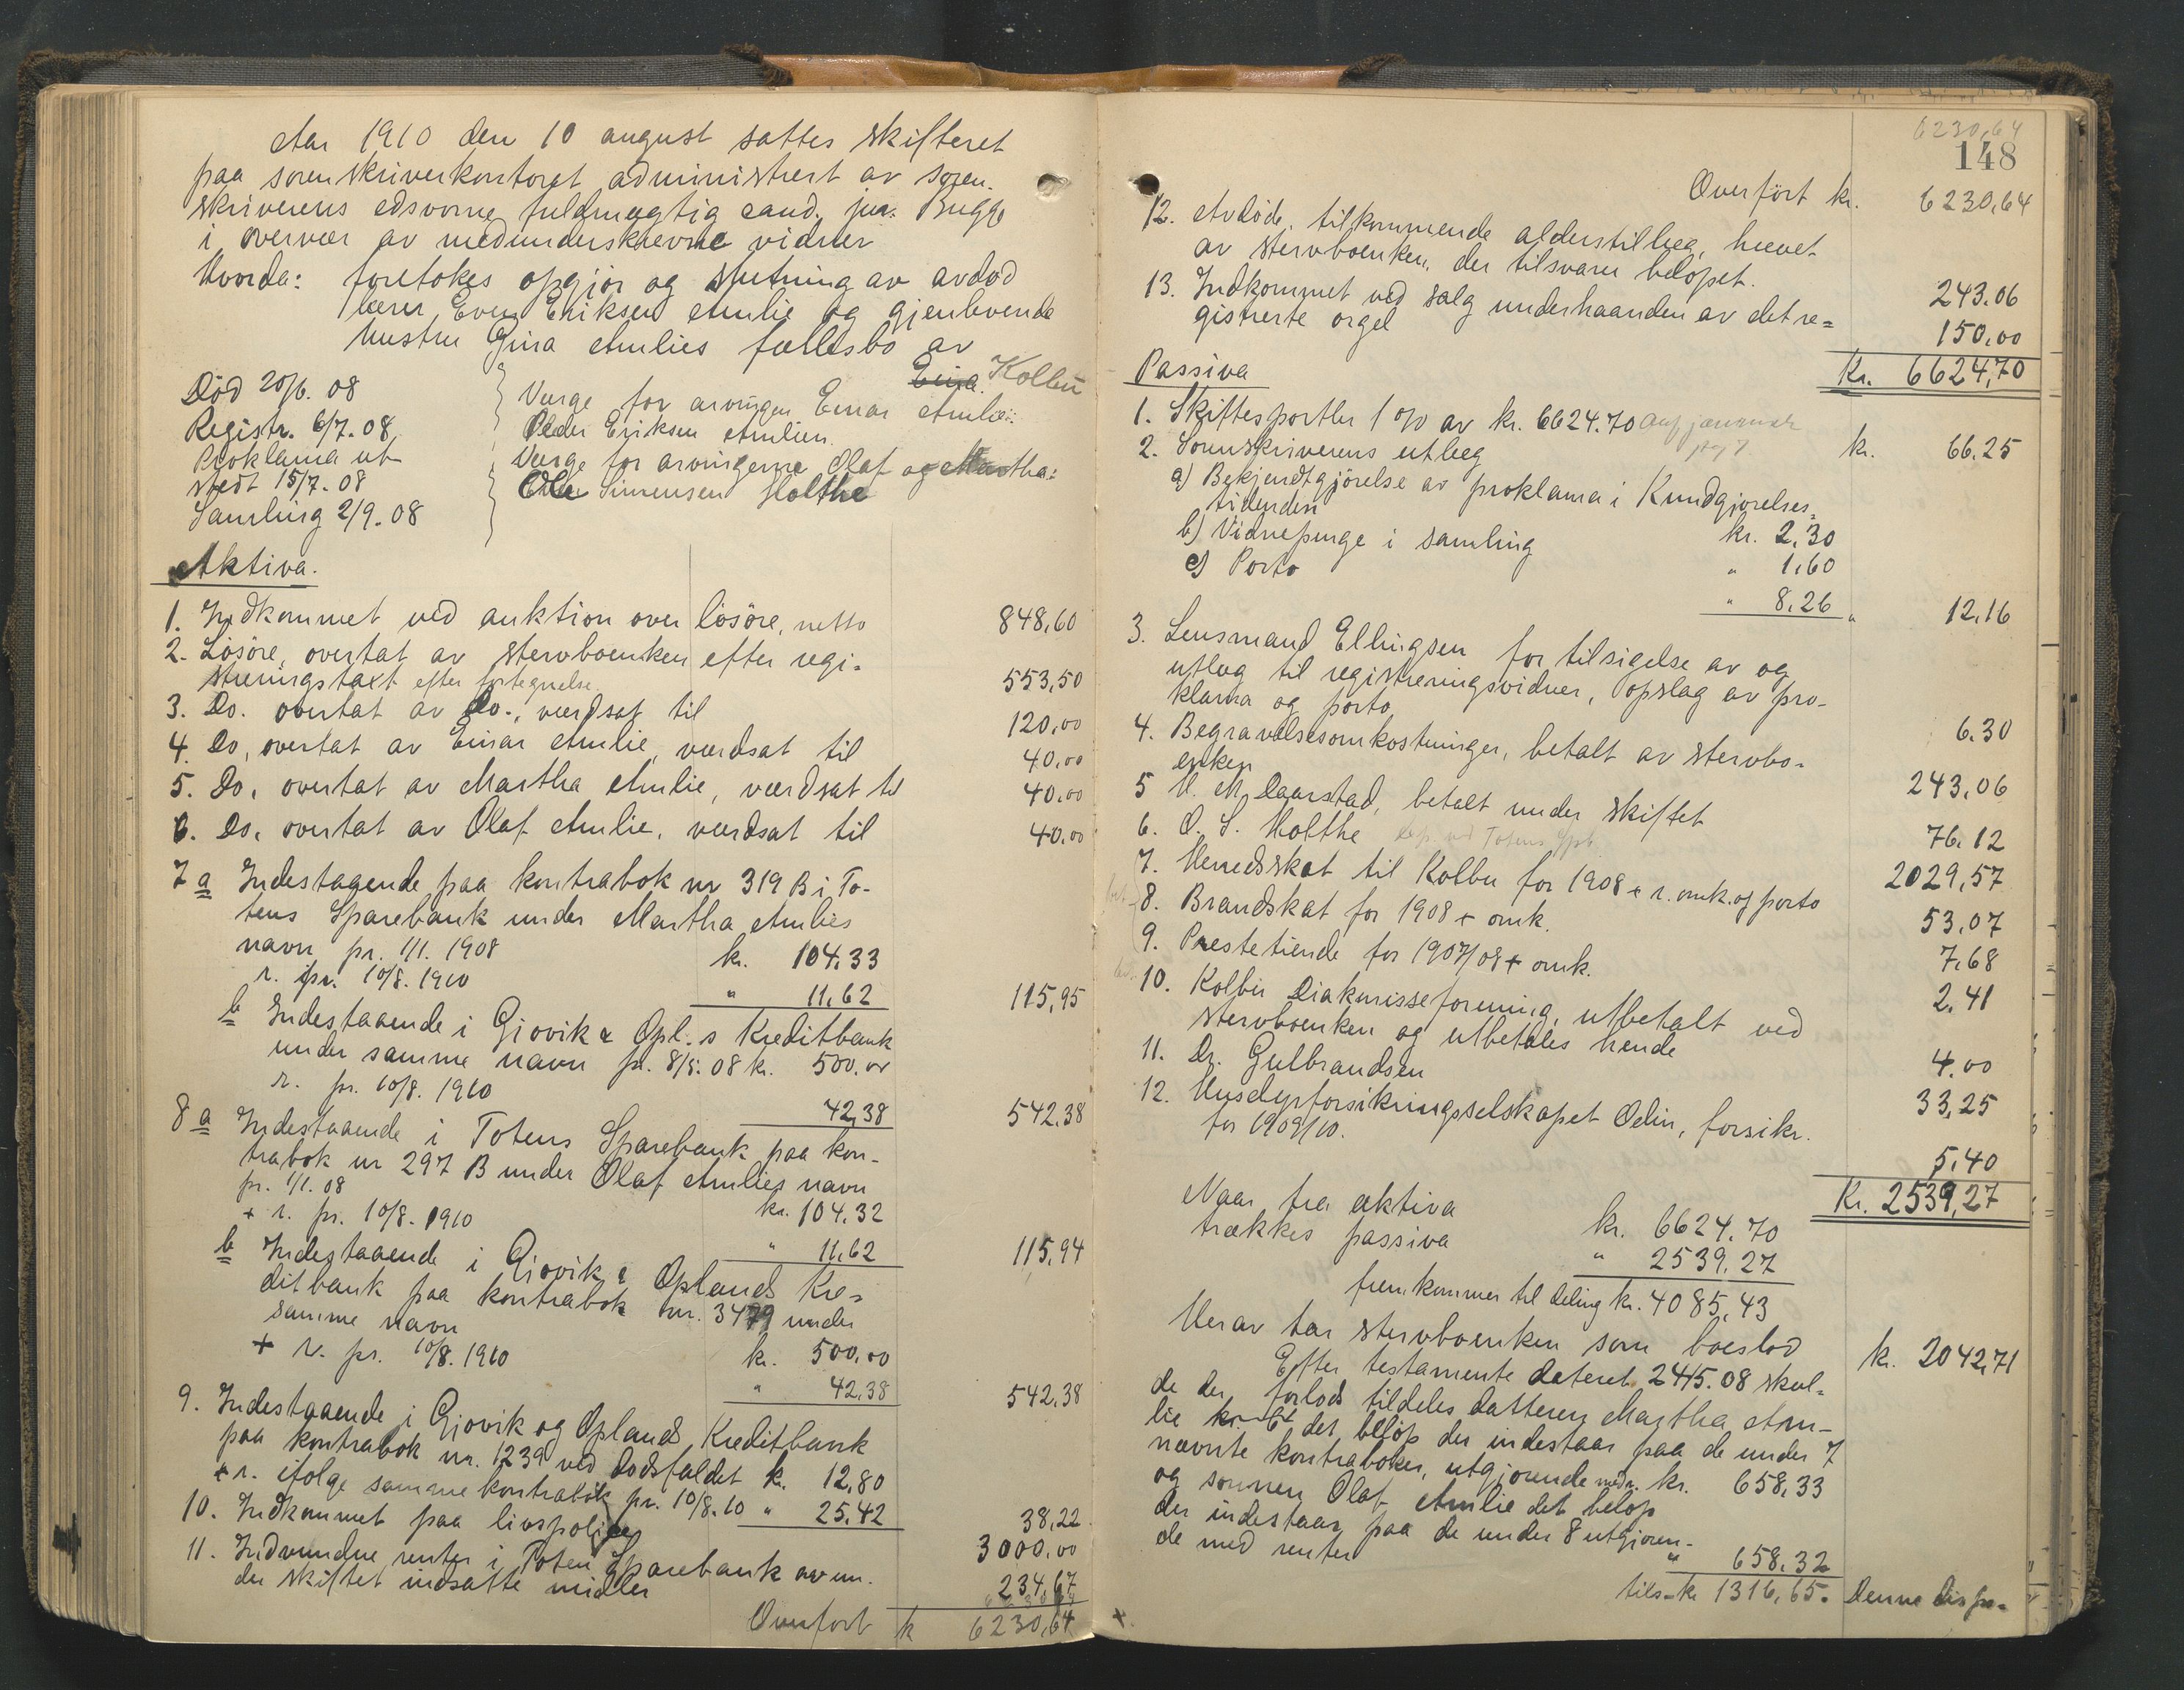 Aar 1910 den 10 august sattes skifteret
paa sorenskriverkontoret administrert av soren-
skriverens edsvorne fuldmægtig cand. jur. Bugge
i overvær av medunderskrevne vidner
Hvorda: foretokes opgjør og slutning av avdød
lærer Even Eriksen Amlie og gjenlevende
hustru Gina Amlies fællesbo av
Eina. Kolbu
Død 20/6. 08
Registr. 6/7. 08
Proklama ut-
stedt 15/7. 08
Samling 2/9. 08
Værge for arvingen Einar Amlie:
Peder Eriksen Amlien.
Værge for arvingerne Olaf og Martha:
Ole Simensen Holthe
Aktiva.
1. Indkommet ved auktion over løsøre, netto 848,60
2. Løsøre, overtat av stervboenken efter regi-
streringstaxt efter fortegnelse 553,50
3. Do. overtat av Do., værdsat til 120,00
4. Do, overtat av Einar Amlie, værdsat til 40,00
5. Do. overtat av Martha Amlie, værdsat til 40,00
6. Do. overtat av Olaf Amlie, værdsat til 40,00
7 a Indestaaende paa kontrabok nr 319 B i To-
tens Sparebank under Martha Amlies
navn pr. 1/1. 1908 kr. 104.33
r. pr. 10/8. 1910 " 11,62 115,95
b Indestaaende i Gjøvik & Opl.s Kreditbank
under samme navn pr. 8/5. 08 kr. 500.00
r. pr. 10/8. 1910 42,38 542.38
8 a Indestaaende i Totens Sparebank paa kon-
trabok nr 297 B under Olaf Amlies navn
pr. 1/1. 08 kr. 104.32
+ r. pr. 10/8. 1910 " 11,62 115,94
b Indestaaende i Gjøvik & Oplands Kre-
ditbank paa kontrabok nr. 3479 under
samme navn kr. 500,00
+ r. pr. 10/8. 1910 " 42.38 542.38
9. Indestaaende i Gjøvik og Oplands Kreditbank
paa kontrabok nr. 1239 ved dødsfaldet k. 12,80
+ r. ifølge samme kontrabok pr. 10/8. 10 " 25.42 38,22
10. Indkommet paa livspolice 3000.00
11. Indvundne renter i Toten Sparebank av un-
der skiftet indsatte midler 234,67
Overført k 6230,64
6230,64
148
Overført kr. 6230,64
12. Avdøde tilkommende alderstillæg, hævet
av stervboenken, der tilsvarer beløpet. 243.06
13. Indkommet ved salg underhaanden av det re=
gistrerte orgel 150,00
Kr. 6624,70
Passiva
1. Skiftesportler 1 % av kr. 6624.70 kr. 66.25
2. Sorenskriverens utlæg
a) Bekjendtgjørelse av proklama i Kundgjørelses-
tidenden kr. 2,30
b) Vidnepenge i samling " 1,60
c) Porto " 8,26 " 12,16
3. Lensmand Ellingsen for tilsigelse av og
utlæg til registreringsvidner, opslag av pro-
klama og porto 6.30
4. Begravelsesomkostninger, betalt av stervbo-
enken 243,06
5 H. M. Daarstad, betalt under skiftet 76.12
6. O. S. Holthe 2029,57
7. Herredsskat til Kolbu for 1908 + r. omk. og porto 53,07
8. Brandskat for 1908 + omk. 7,68
9. Prestetiende for 1907/08 + omk. 2,41
10. Kolbu Diakonisseforening, utbetalt ved
stervboenken og utbetales hende 4.00
11. Dr. Gulbrandsen 33,25
12. Husdyrforsikringsselskapet Odin, forsikr.
for 1909/10. 5.40
Kr. 2539,27
Naar fra aktiva kr. 6624.70
trækkes passiva " 2539.27
fremkommer til deling kr. 4085,43
Herav tar stervboenken som boeslod kr. 2042,71
Efter testamente dateret 24/5. 08 skul-
de der forlods tildeles datteren Martha Am-
lie det beløp der indestaar paa de under 7
nævnte kontrabøker, utgjørende m. r. kr. 658,33
og sønnen Olaf Amlie det beløp
der indestaar paa de under 8 utgjøren-
de med renter " 658,32
tils. kr 1316,65. Denne dispo-